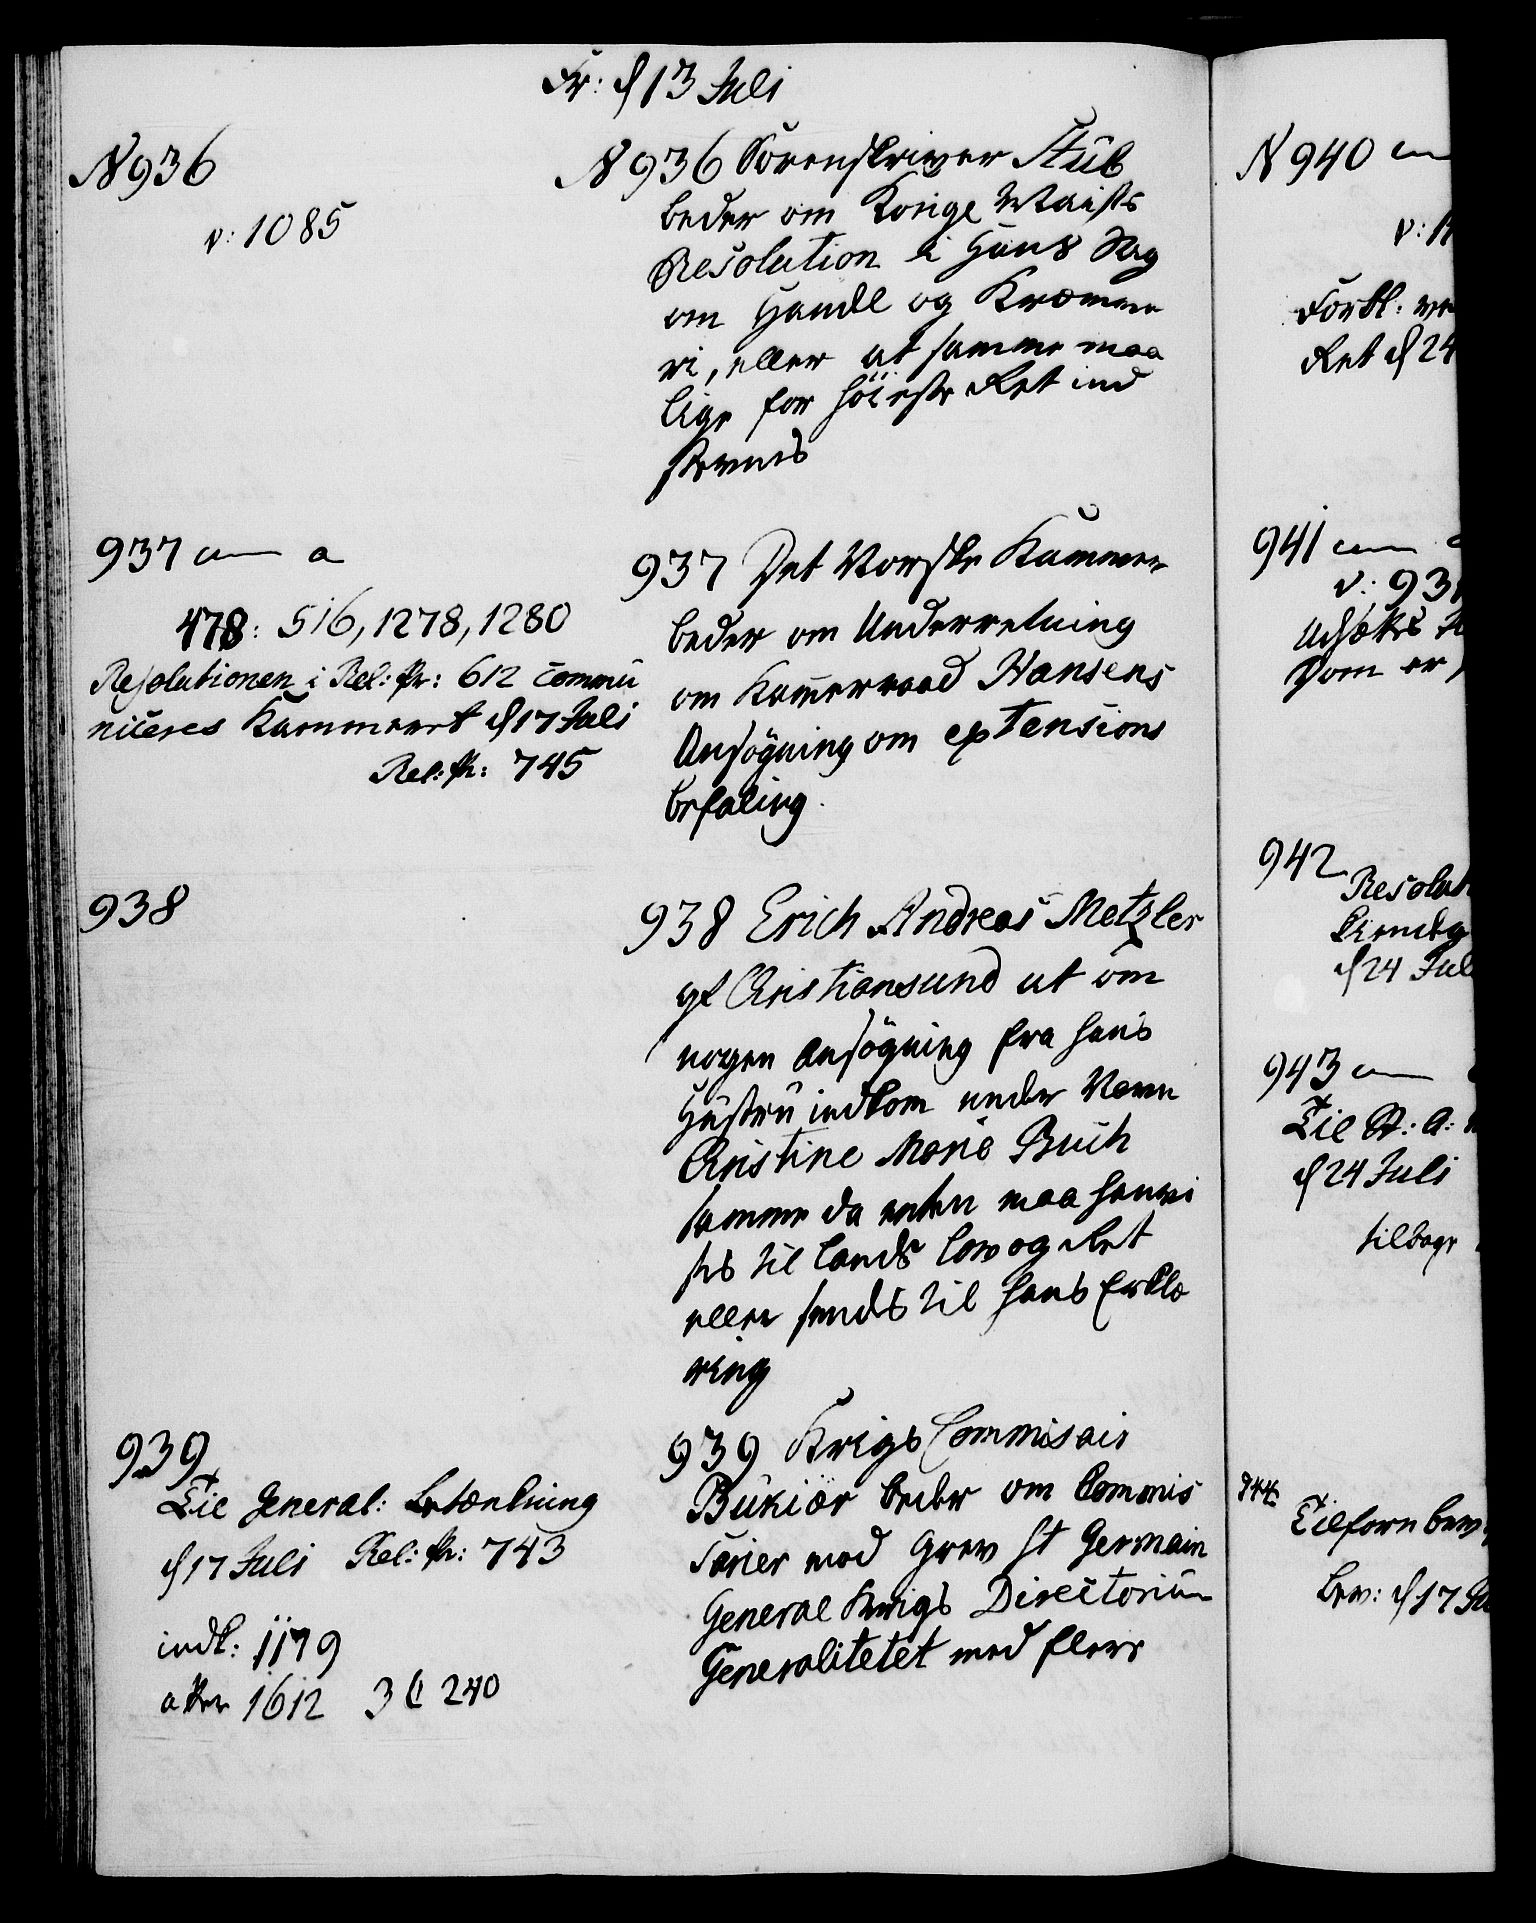 Fr: d 13 Juli
N 936
v: 1085
N 936 Sorenskriver Stub
beder om Konge Maists
Resolution i Hans Sag
om Handl og Kræmme
ri, eller at samme maa
lige for höieste Ret ind
stevnes
937 a
478: 516, 1278, 1280
Resolutionen i Rel: Pr: 612 commu
niceres Kammeret d 17 Juli
Rel: Pr: 745
937 Det Norske Kammer
beder om Underretning
om Kamerraad Hansens
Ansögning om extensions
befaling.
938
938 Erich Andreas Metzler
af Christiansund at om
nogen Ansögning fra hans
Hustru indkom under Navn
Christine Marie Buch
samme da enten maa henvi
ses til Lands Lov og Ret
eller sendes til hans Erklæ
ring
939
Til General: Betænkning
d 17 Juli Rel: Pr: 743
indk: 1179
atter 1612 3 C 240
939 Krigs Commisair
Bukiær beder om Commis
sarier mod Grev St Germain
General Krigs Directorium
Generalitetet med flere
N 940
v: 1
Forkl:
Ret d 24
941
v: 93
Udsættes
Dom er
942
Resolut
d 24 Jul
943
Til St: A:
d 24 Juli
tilbage
944
Tilforn bev
Brev: d 17 Ju